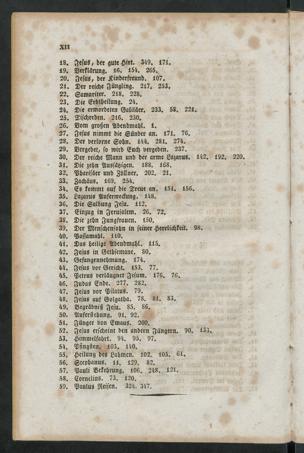 XII
18. Jesus, der gute Hirt. 349, 171.
19. Verklärung. 16, 154, 265.
20. Jesus, der Kinderfreund. 107.
21. Der reiche Jüngling. 217, 253.
22. Samariter. 218, 228.
23. Die Ehebrecherin. 24.
24. Die ermordeten Galiläer. 233, 58, 221.
25. Tischreden. 216, 230.
26. Vom großen Abendmahl. 1.
27. Jesus nimmt die Sünder an. 171, 76.
28. Der verlorne Sohn. 144, 281, 274.
29. Vergebet, so wird Euch vergeben. 237.
30. Der reiche Mann und der arme Lazarus. 142, 192, 220.
31. Die zehn Aussätzigen. 188, 168.
32. Pharisäer und Zöllner. 202, 21.
33. Zachäus. 169, 254.
34. Es kommt auf die Treue an. 151, 156.
35. Lazarus Auferweckung. 148.
36. Die Salbung Jesu. 112.
37. Einzug in Jerusalem. 26, 72.
38. Die zehn Jungfrauen. 150.
39. Der Menschensohn in seiner Herrlichkeit. 98.
40. Passamahl. 110.
41. Das heilige Abendmahl. 115.
42. Jesus in Gethsemane. 80.
43. Gefangennehmung. 174.
44. Jesus vor Gericht. 153, 77.
45. Petrus verläugnet Jesum. 175, 76.
46. Judas Ende. 277, 282.
47. Jesus vor Pilatus. 79.
48. Jesus auf Golgatha. 78, 81, 83.
49. Begräbniß Jesu. 85, 86.
50. Auferstehung. 91, 92.
51. Jünger von Emaus. 200.
52. Jesus erscheint den andern Jüngern. 90, 133.
53. Himmelfahrt. 94, 95, 97.
54. Pfingsten. 103, 140.
55. Heilung des Lahmen. 102, 105, 61.
56. Stephanus. 11, 129, 82.
57. Pauli Bekehrung. 106, 248, 121.
58. Cornelius. 73, 120.
59. Paulus Reisen. 324, 347.